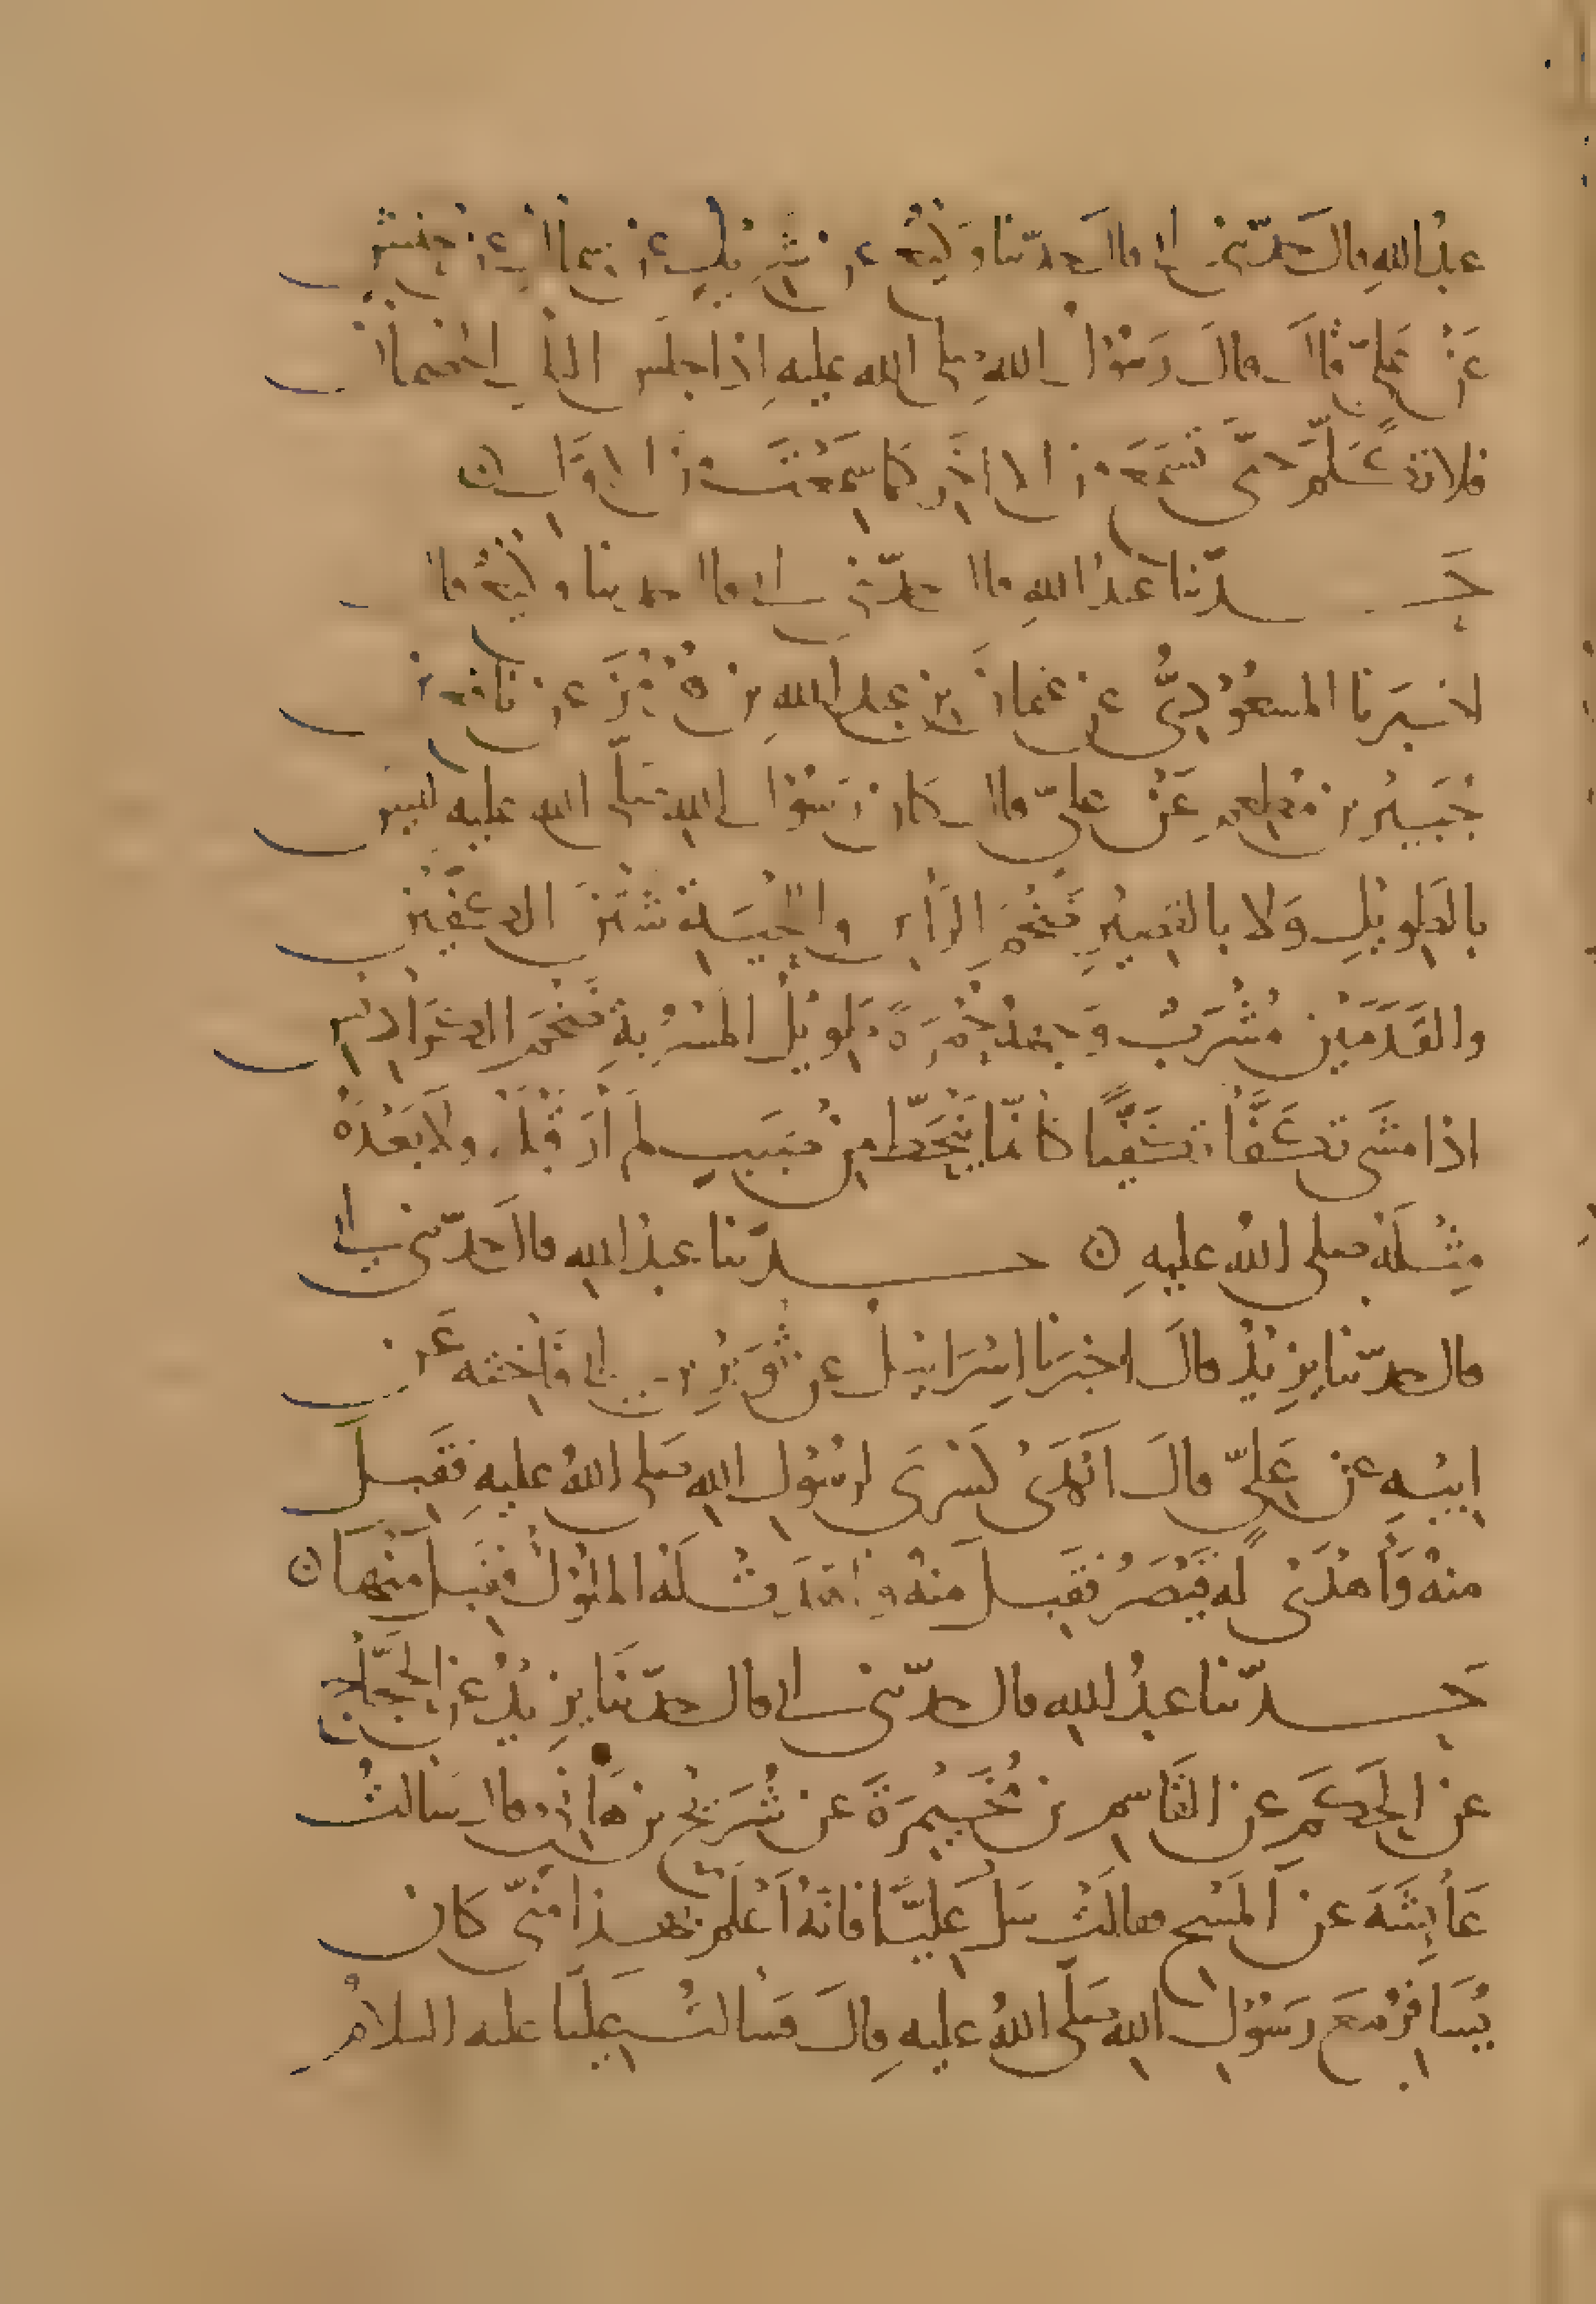 عبدُ اللهِ قالَ حدّثنى ابى قالَ حدّثنا وكيعٌ عن شَرِيكٍ عن سماكٍ عن حنشٍ
عَنْ عَلىٍّ قالَ قالَ رَسُولُ اللهِ صلى الله عليهِ اِذا جلس اليك الخصمان
فلا تَكَلَّم حتّى تَسمَعَ من الاخَرِ كما سَمِعْتَ من الاوَّلِ
حَدّثنا عبدُ اللهِ قال حدّثنى ابى قال حدثنا وكيعٌ قال
اخبَرنا المسعُودِىُّ عن عثمانَ بنِ عبدِ اللهِ بن هُرْمُزَ عن نافع بن
جُبَيرِ بن مُطعمٍ عَنْ علىّ قال كان رَسُولُ اللهِ صَلّى الله عليه ليس
بالطويلِ وَلا بالقصيرِ ضَخْمَ الرَّأسِ واللحْيَةِ شَثْنَ الكَفَّينِ
والقَدَمَيْنِ مُشْرَبٌ وَجهُهُ حُمْرَةً طَوِيلَ المَسْرُبةِ ضَخْمَ الكَرَادِيسِ
اذا مشَى تَكَفَّأَ تَكَفِّيًا كأنّما يَنْحَطُّ من صَبَبٍ لم أرَ قَبْلَهُ ولا بَعْدَهُ
مِثْلَهُ صلى اللهُ عليهِ حدّثنا عبدُ اللهِ قالَ حدّثنى ابى
قال حدّثنا يزِيْدُ قالَ اخبَرنا اسْرَائيْلُ عن ثُوَيْرِ بن ابى فَاخِتَه عَن
ابيْهِ عن عَلِىّ قالَ اَهْدَى كَسْرَى لرسُولِ اللهِ صَلى اللهُ عليهِ فقَبِلَ
منهُ وَأهْدَى له قَيْصَرُ فقَبِلَ منهُ وَاهْدَتْ لَهُ الملُوكُ فقَبِلَ منْهَا
حَدّثنا عبدُ اللهِ قال حدّثنى ابى قال حدّثنَا يزِيْدُ عن الحجَّاجِ
عن الحكَمِ عن القَاسِمِ بن مُخَيْمِرَةَ عن شُرَيْحِ بن هَانِئٍ قال سَالتُ
عَايِشَةَ عن المَسْحِ فقالَتْ سَلْ عَلِيًّا فانَّهُ اَعْلَمُ بهذا منّى كان
يُسَافِرُ مَعَ رَسُولِ اللهِ صَلّى اللهُ عليهِ قالَ فسَالتُ عَلِيّا عليه السلامُ